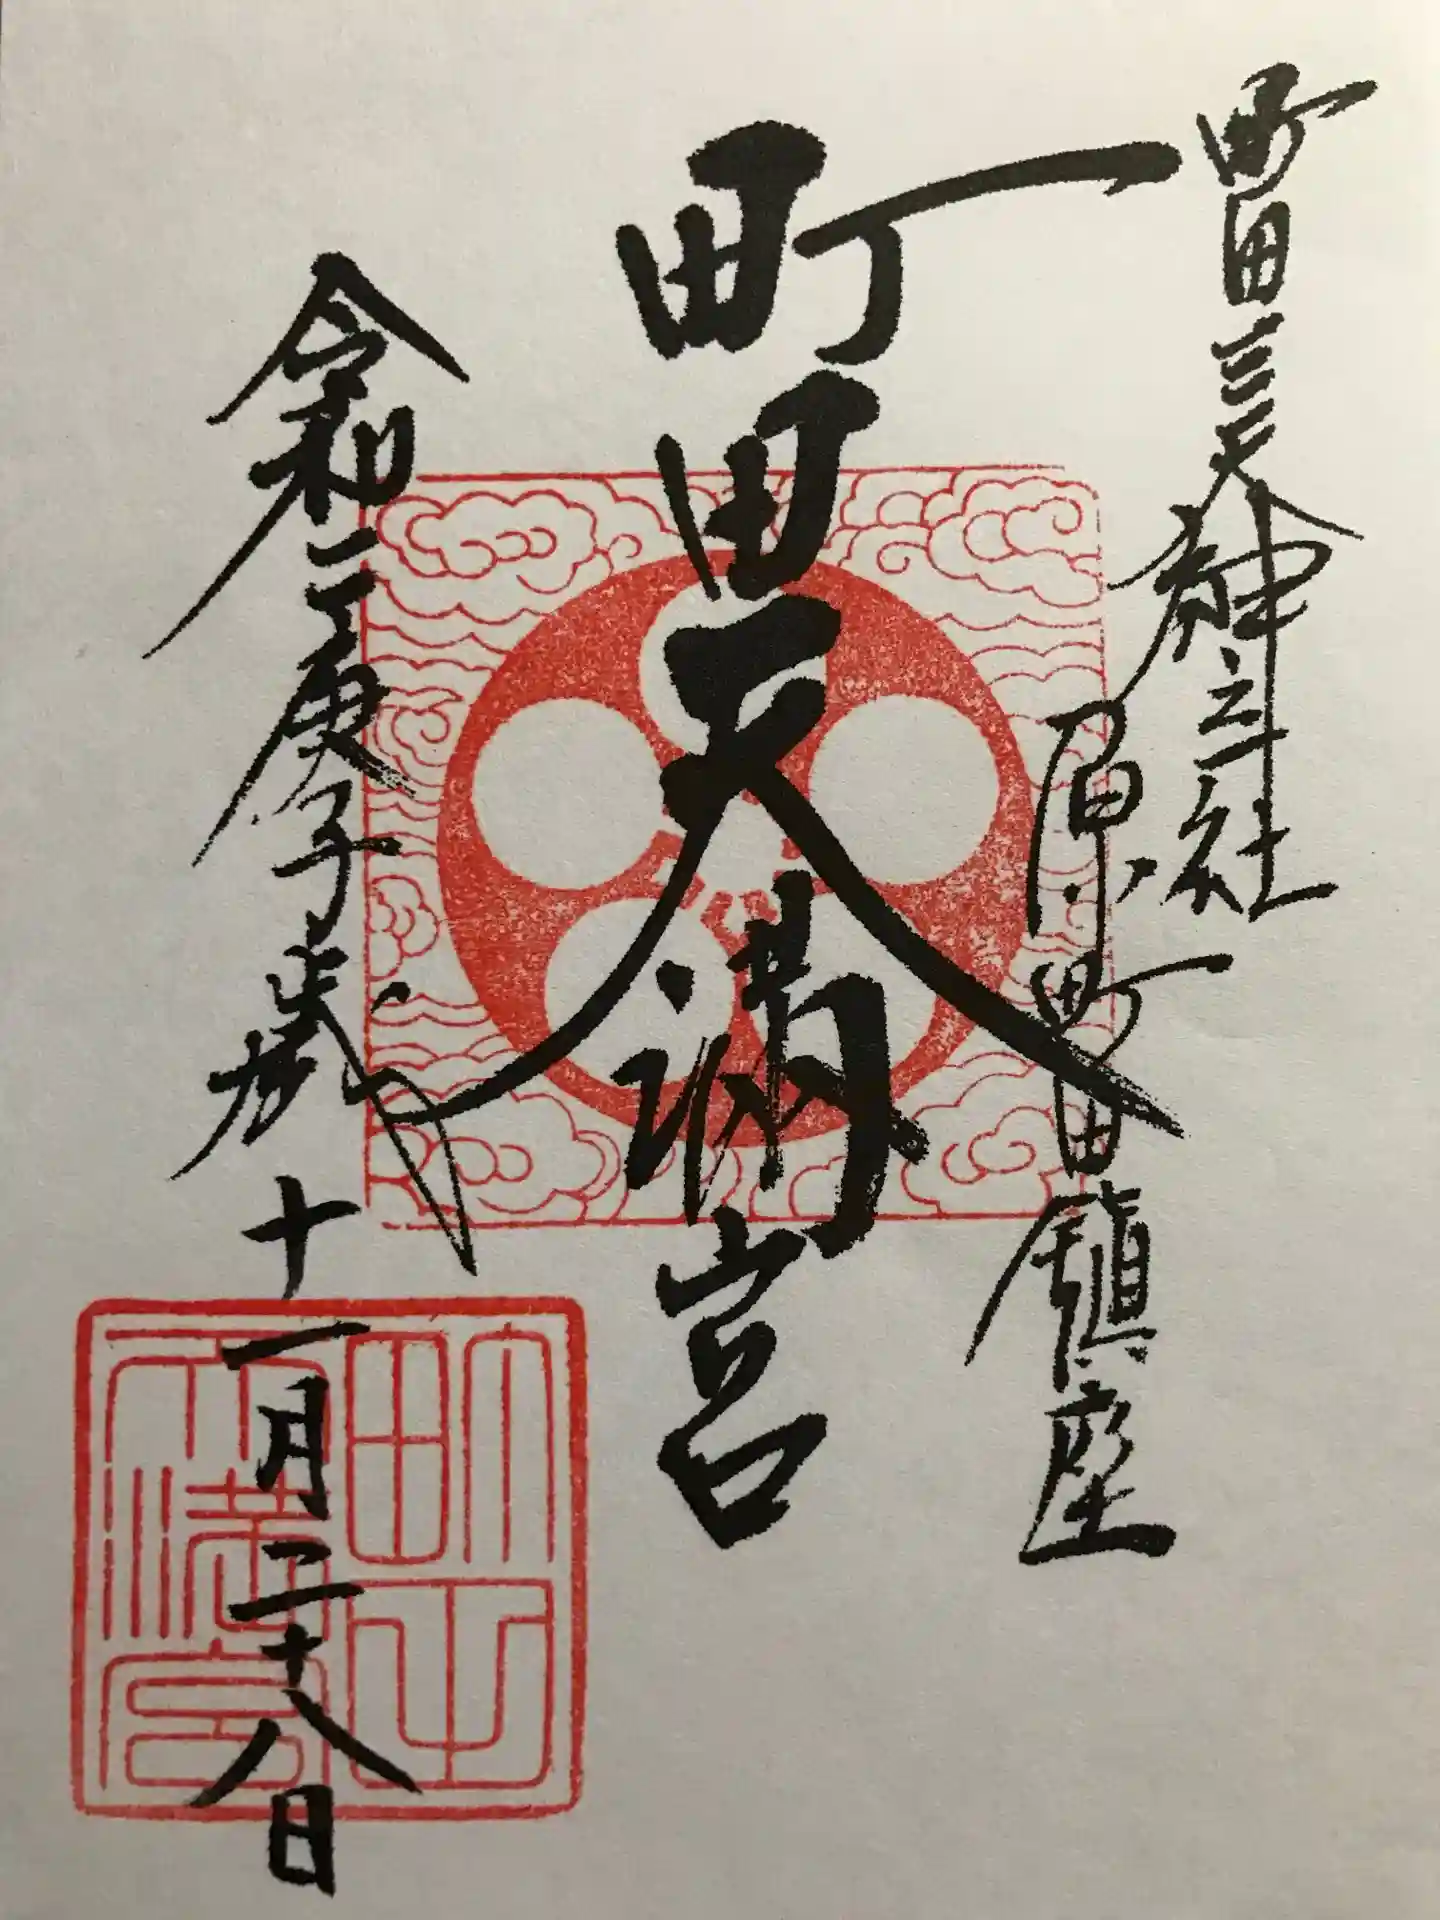 町田三天神之社
原町田鎮座
町田天満宮
令和二庚子歳十一月二十八日
町田天満宮